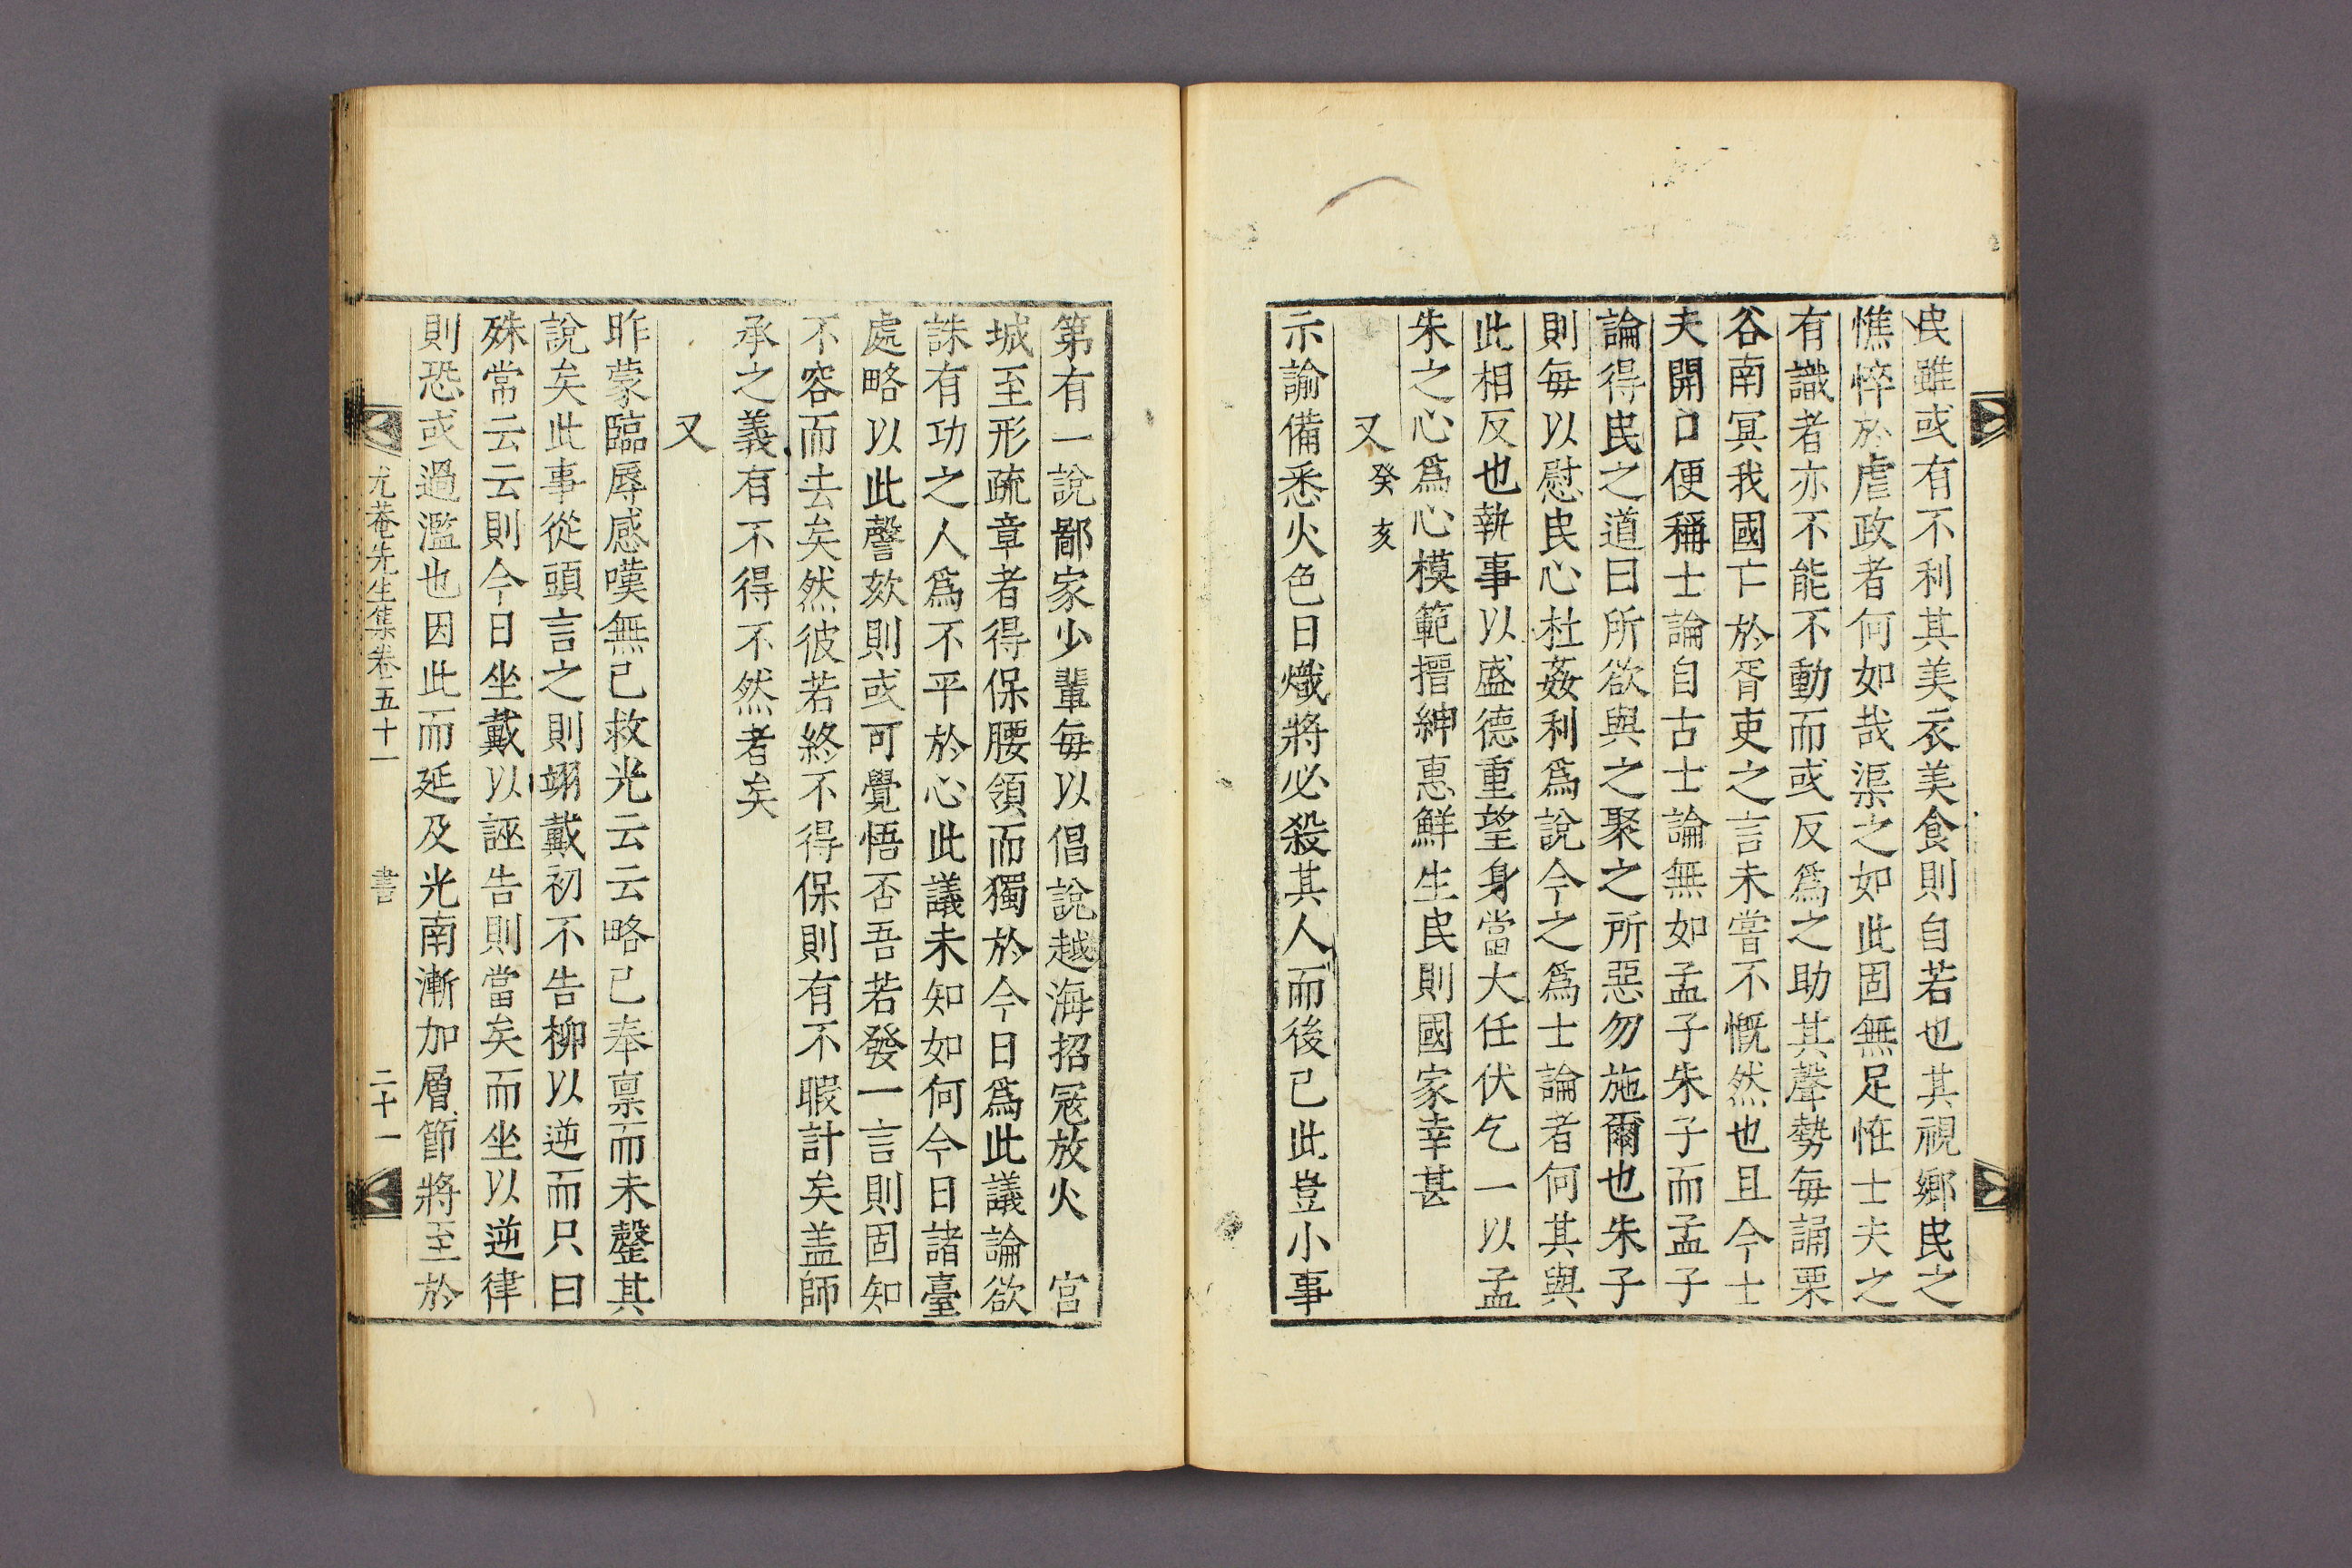 民雖或有不利其美衣美食則自若也其視鄉民之
憔悴於虐政者何如哉渠之如此固無足恠士夫之
有識者亦不能不動而或反爲之助其聲勢每誦栗
谷南冥我國亡於胥吏之言未嘗不慨然也且今士
夫開口便稱士論自古士論無如孟子朱子而孟子
論得民之道曰所欲與之聚之所惡勿施爾也朱子
則每以慰民心杜姦利爲說今之爲士論者何其與
此相反也執事以盛德重望身當大任伏乞一以孟
朱之心爲心模範搢紳惠鮮生民則國家幸甚
又 癸亥
示諭備悉火色日熾將必殺其人而後已此豈小事
第有一說鄙家少輩每以倡說越海招冦放火 宮
城至形疏章者得保腰領而獨於今日爲此議論欲
誅有功之人爲不平於心此議未知如何今日諸臺
處略以此謦欬則或可覺悟否吾若發一言則固知
不容而去矣然彼若終不得保則有不暇計矣盖師
承之義有不得不然者矣
又
昨蒙臨辱感嘆無已救光云云略已奉稟而未罄其
說矣此事從頭言之則翊戴初不告柳以逆而只曰
殊常云云則今日坐戴以誣告則當矣而坐以逆律
則恐或過濫也因此而延及光南漸加層節將至於
尤菴先生集卷五十一 書 二十一